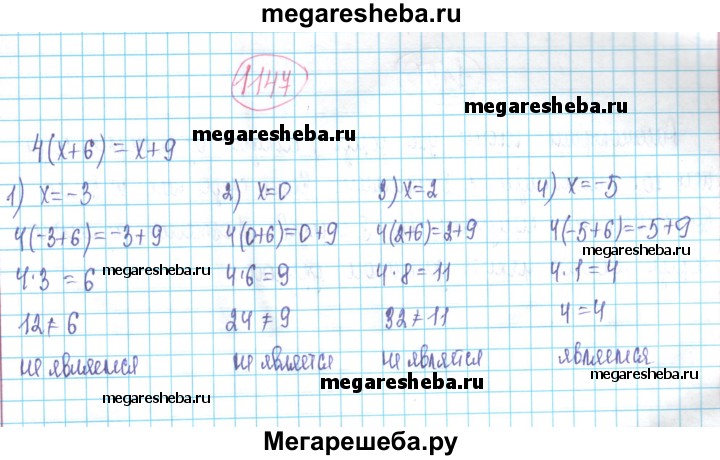 megaresheba.ru
1147
megaresheba.ru
4(x+6)=x+9
megaresheba.ru
1) x=-3 2) x=0 3) x=2 4) x=-5
4(-3+6)=-3+9 4(0+6)=0+9 4(2+6)=2+9 4(-5+6)=-5+9
megaresheba.ru
4·3=6 4·6=9 4·8=11 4·1=4
megaresheba.ru
12≠6 24≠9 32≠11 4=4
не является не является не является является
megaresheba.ru
megaresheba.ru
Мегарешеба.ру